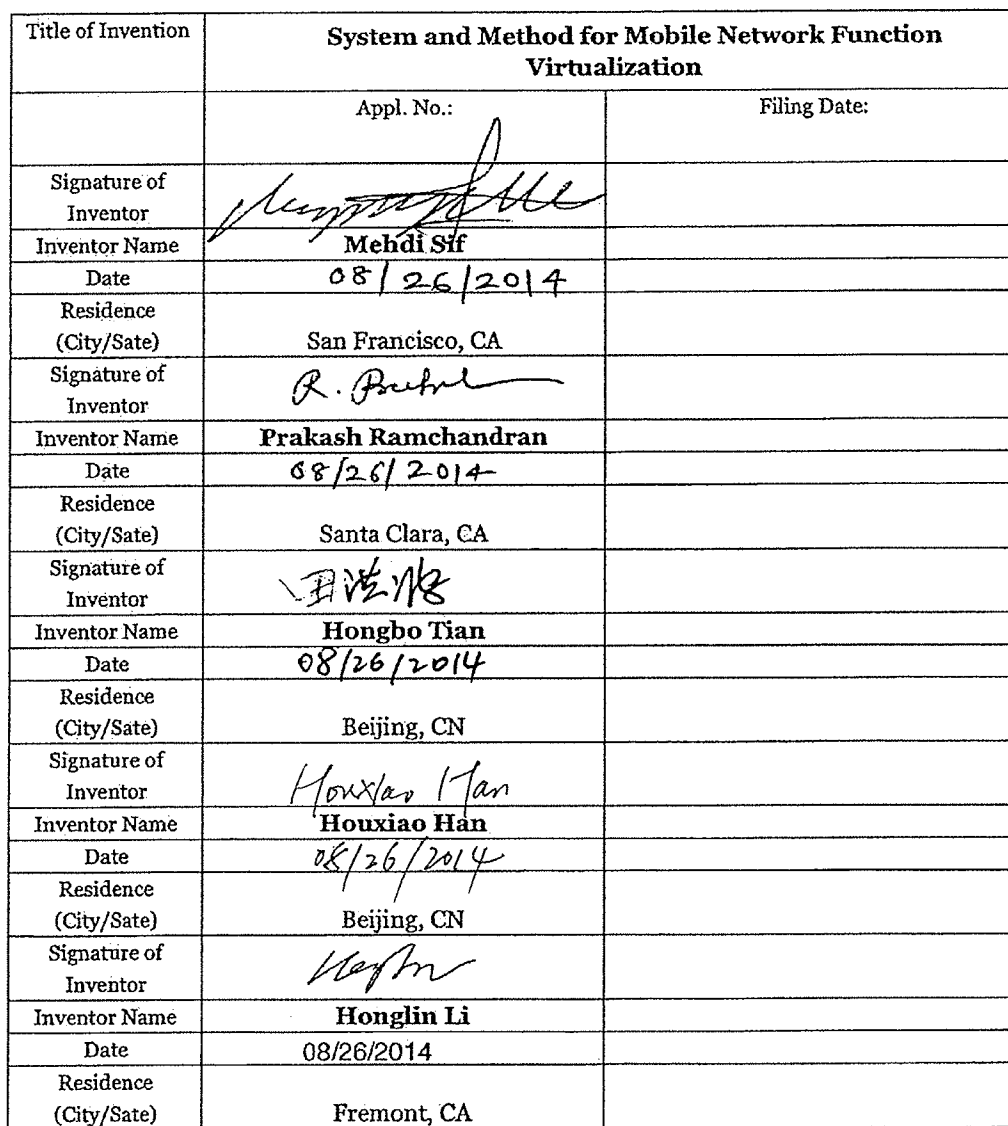 Title of Invention
System and Method for Mobile Network Function
Virtualization
Appl. No.:
Filing Date:
Signature of
Inventor
Inventor Name
Mehdi Sif
Date
08/26/2014
Residence
(City/Sate)
San Francisco, CA
Signature of
Inventor
Inventor Name
Prakash Ramchandran
Date
08/26/2014
Residence
(City/Sate)
Santa Clara, CA
Signature of
Inventor
Inventor Name
Hongbo Tian
Date
08/26/2014
Residence
(City/Sate)
Beijing, CN
Signature of
Inventor
Houxiao Han
Inventor Name
Houxiao Han
Date
08/26/2014
Residence
(City/Sate)
Beijing, CN
Signature of
Inventor
Inventor Name
Honglin Li
Date
08/26/2014
Residence
(City/Sate)
Fremont, CA